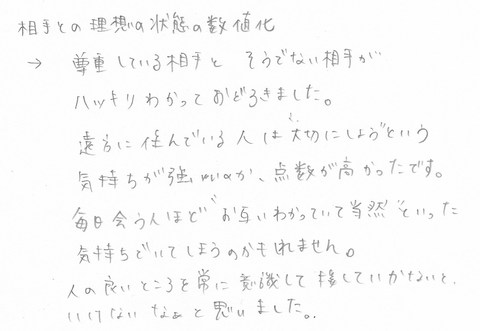 相手との理想の状態の数値化
→ 尊重している相手と そうでない相手が
ハッキリわかっておどろきました。
遠方に住んでいる人は"大切にしよう"という
気持ちが強いのか、点数が高かったです。
毎日会う人ほど"お互いわかっていて当然"といった
気持ちでいてしまうのかもしれません。
人の良いところを常に意識して接していかないと、
いけないなぁと思いました。